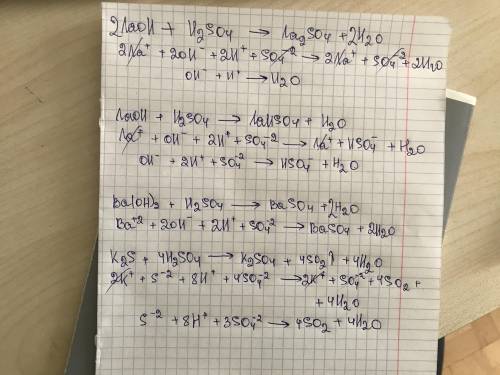 2NaOH + H₂SO₄ → Na₂SO₄ + 2H₂O
2Na⁺ + 2OH⁻ + 2H⁺ + SO₄⁻² → 2Na⁺ + SO₄⁻² + 2H₂O
OH⁻ + H⁺ → H₂O
NaOH + H₂SO₄ → NaHSO₄ + H₂O
Na⁺ + OH⁻ + 2H⁺ + SO₄⁻² → Na⁺ + HSO₄⁻ + H₂O
OH⁻ + 2H⁺ + SO₄⁻² → HSO₄⁻ + H₂O
Ba(OH)₂ + H₂SO₄ → BaSO₄ + 2H₂O
Ba⁺² + 2OH⁻ + 2H⁺ + SO₄⁻² → BaSO₄ + 2H₂O
K₂S + 4H₂SO₄ → K₂SO₄ + 4SO₂↑ + 4H₂O
2K⁺ + S⁻² + 8H⁺ + 4SO₄⁻² → 2K⁺ + SO₄⁻² + 4SO₂ +
+ 4H₂O
S⁻² + 8H⁺ + 3SO₄⁻² → 4SO₂ + 4H₂O